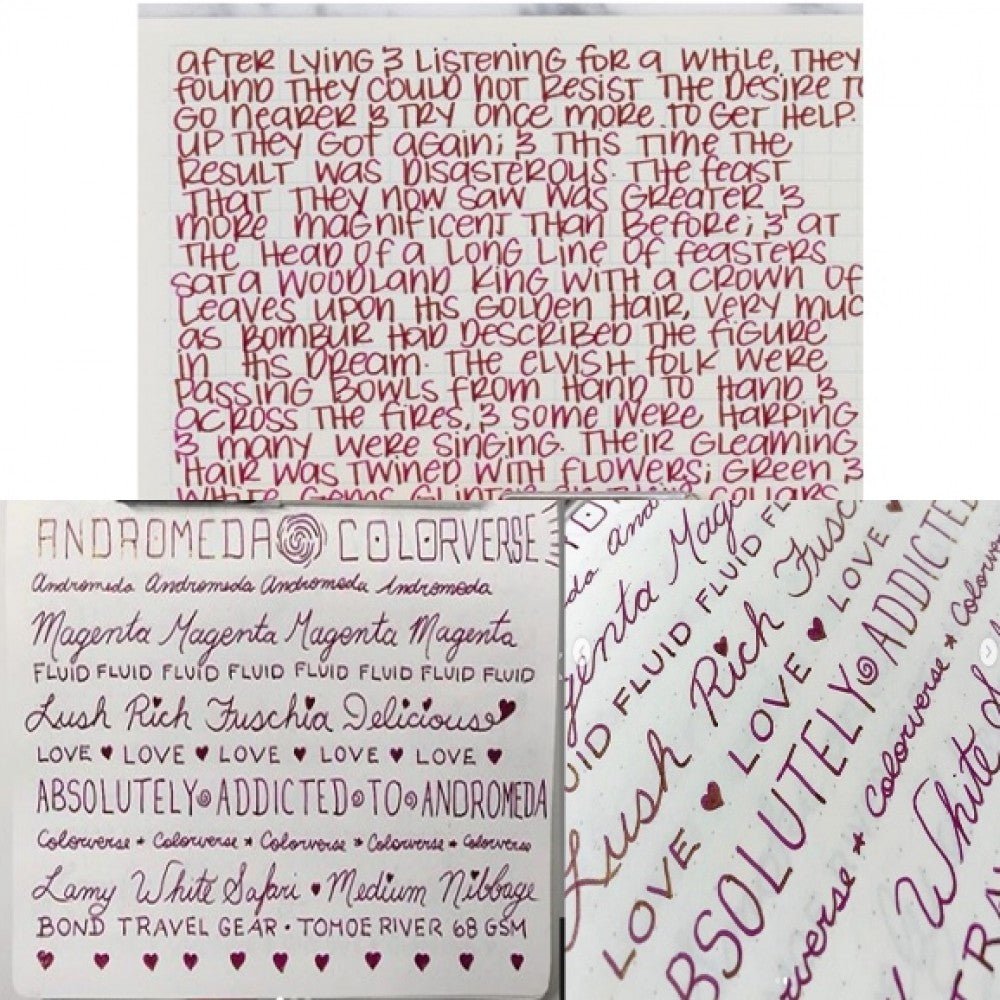 after Lying & Listening for a While, They
found They could not resist the desire to
go nearer & try once more to get help.
up they got again; & this time the
result was disasterous. The feast
that they now saw was greater &
more magnificent than before; & at
the head of a long line of feasters
sat a woodland king with a crown of
leaves upon his golden hair, very muc
as Bombur had described the figure
in his dream. The elvish folk were
passing bowls from hand to hand &
across the fires, & some were harping
& many were singing. Their gleaming
hair was twined with flowers; green &
white gems glinted on their collars
ANDROMEDA COLORVERSE
Andromeda Andromeda Andromeda Andromeda
Magenta Magenta Magenta Magenta
FLUID FLUID FLUID FLUID FLUID FLUID FLUID FLUID
Lush Rich Fuschia Delicious
LOVE ♥ LOVE ♥ LOVE ♥ LOVE ♥ LOVE ♥
ABSOLUTELY ADDICTED TO ANDROMEDA
Colorverse * Colorverse * Colorverse * Colorverse * Colorverse
Lamy White Safari ♥ Medium Nibbage
BOND TRAVEL GEAR · TOMOE RIVER 68 GSM
da. And
genta Mag
UID FLUID FLUID FL
Lush Rich Fusc
LOVE ♥ LOVE ♥ LOVE ♥
BSOLUTELY ADDICTED
rverse * Colorverse * Colorv
White S
TRA